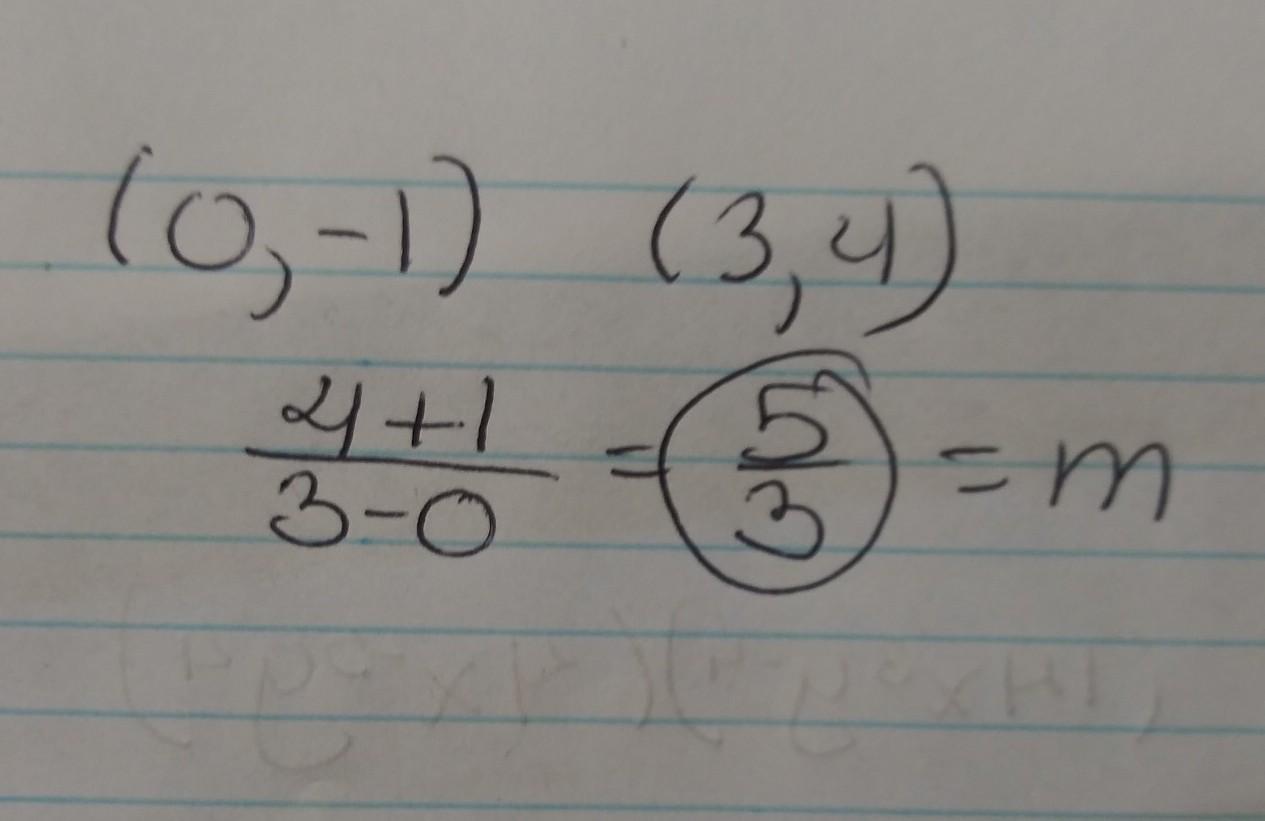 (0,-1) (3,4)
4+1/3-0 = 5/3 = m